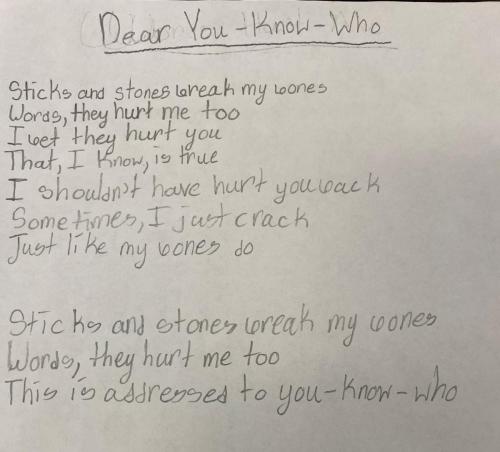 Dear You-Know-Who
Sticks and stones break my bones
Words, they hurt me too
I bet they hurt you
That, I know, is true
I shouldn't have hurt you back
Sometimes, I just crack
Just like my bones do
Sticks and stones break my bones
Words, they hurt me too
This is addressed to you-know-who